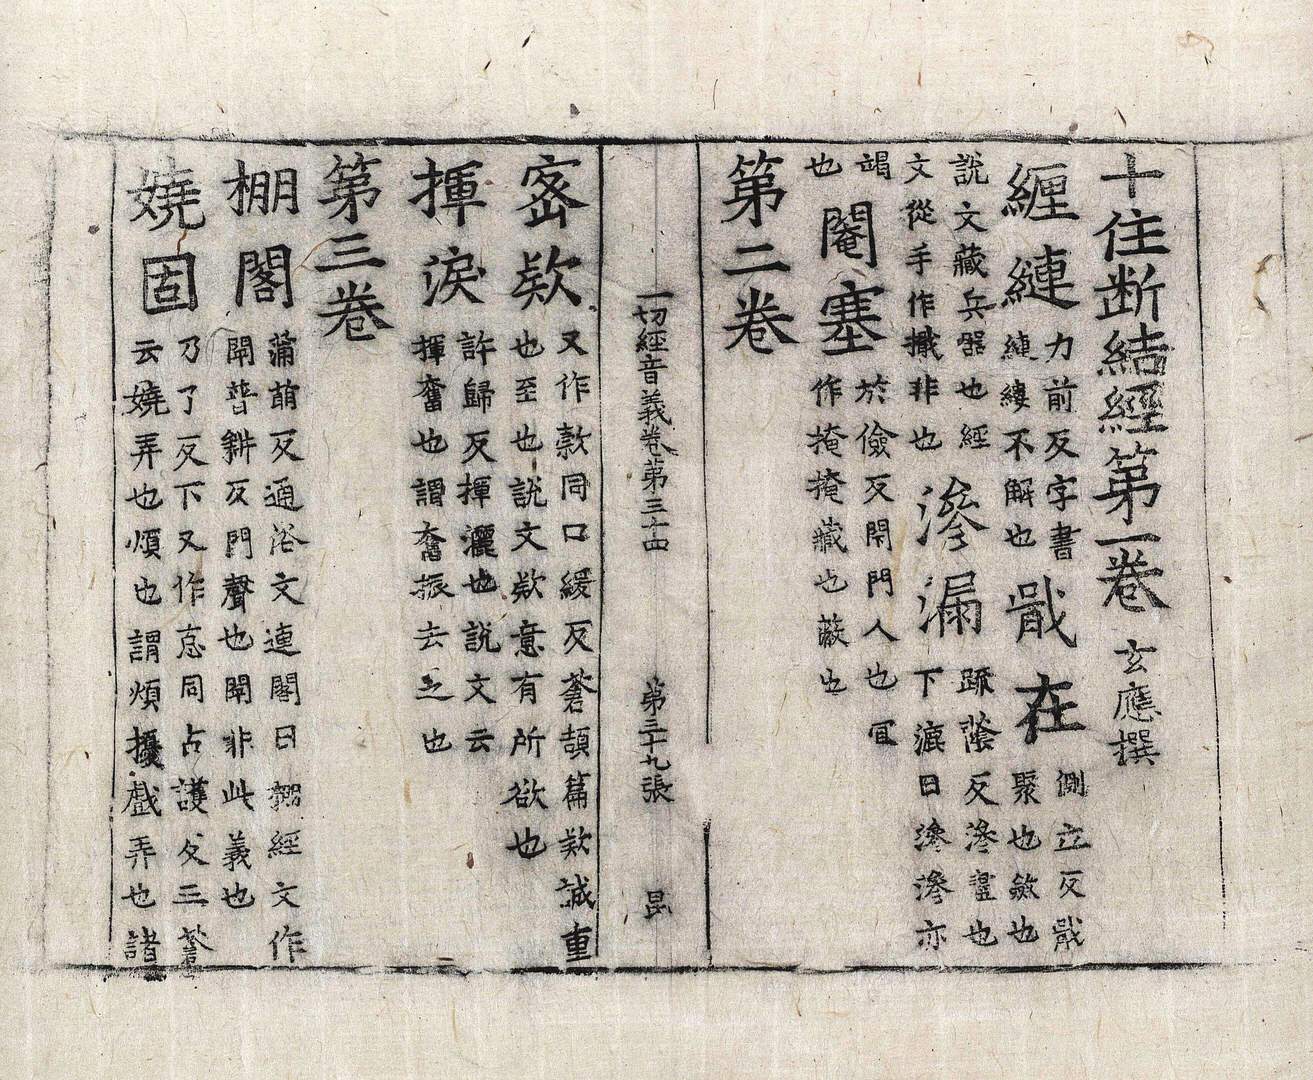 十住断結經第一卷 玄應撰
纏縺 力前反字書縺縷不解也 戢在 側立反戢聚也斂也
說文藏兵器也經文從手作擮非也 滲漏 踈蔭反滲盝也下漉曰滲滲亦
竭也 閹塞 於儉反閇門人也冝作掩掩藏也蔽也
第二卷
一切經音義卷第三十四 第三十九張 昆
密欵 又作款同口緩反蒼頡篇欵誠重也至也說文欵意有所欲也
揮淚 許歸反揮灑也說文云揮奮也謂奮振去之也
第三卷
棚閣 蒲萠反通俗文連閣曰棚經文作閛普耕反門聲也閛非此義也
嬈固 乃了反下又作怘同古護反三蒼云嬈弄也煩也謂煩擾戲弄也諸